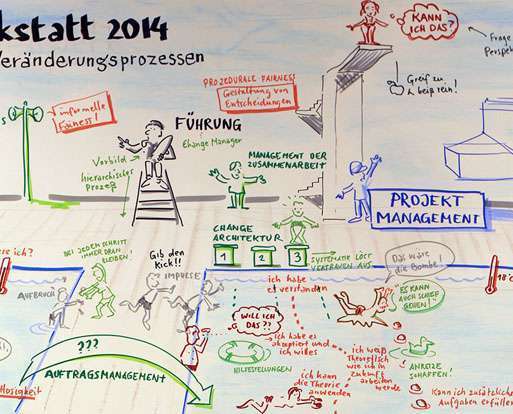 kstatt 2014
Veränderungsprozessen
informelle
Fairness!
PROZEDURALE FAIRNESS
Gestaltung von
Entscheidungen
KANN
ICH DAS?
Frage
Perspek
Greif zu
& beiß rein!
FÜHRUNG
Change Manager
Vorbild
hierarchischer
Prozeß
MANAGEMENT DER
ZUSAMMENARBEIT
PROJEKT
MANAGEMENT
CHANGE
ARCHITEKTUR
1
2
3
SYSTEMATIK LÖST
VERTRAUEN AUS
Das wäre
die Bombe!
18°C
ere ich?
BEI JEDEM SCHRITT
IMMER DRAN
BLEIBEN!
Gib den
Kick!!
IMPULSE
AUFBRUCH
ich habe
es verstanden
ES KANN
AUCH SCHIEF
GEHEN!
WILL ICH
DAS??
ich habe es
akzeptiert und
ich will es
HILFESTELLUNGEN
ich weiß
theoretisch
wie ich in
Zukunft
arbeiten
werde
ANREIZE
SCHAFFEN!
???
AUFTRAGSMANAGEMENT
losigkeit
ich kann
die Theorie
anwenden
Kann ich zusätzliche
Aufgaben erfüllen